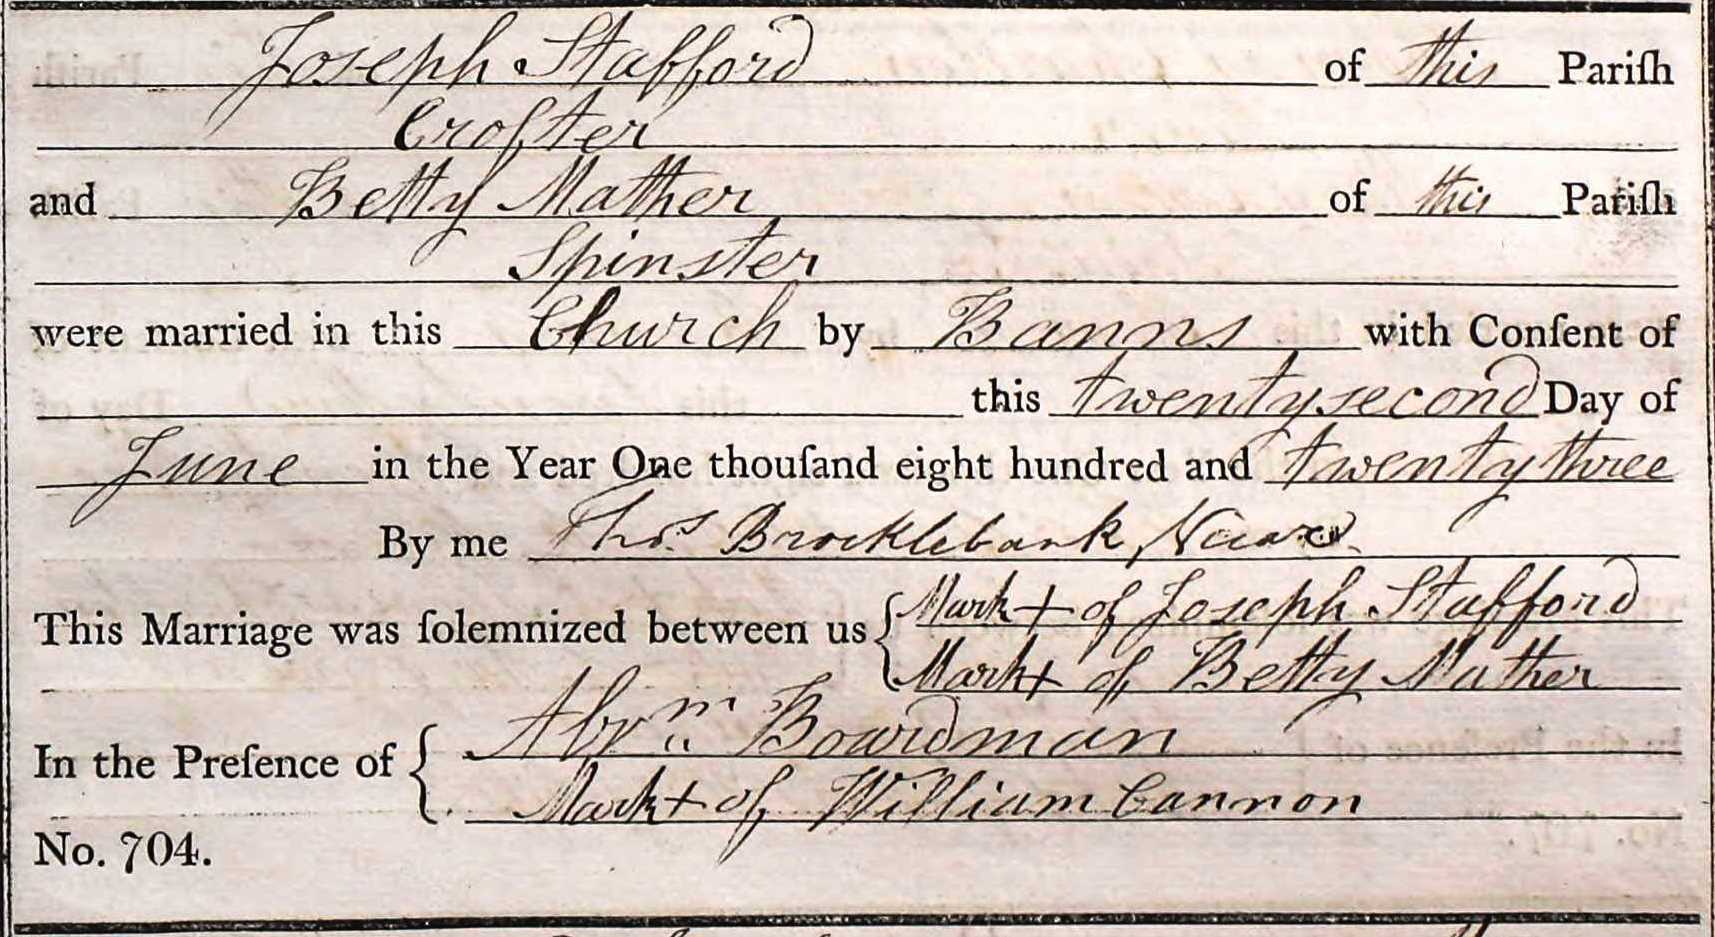 Joseph Stafford of this Pariſh
Crofter
and Betty Mather of this Pariſh
Spinster
were married in this Church by Banns with Conſent of
this twenty second Day of
June in the Year One thouſand eight hundred and twenty three
By me Thos. Brocklebank
This Marriage was ſolemnized between us { Mark + of Joseph Stafford
Mark + of Betty Mather
In the Preſence of { Abrm. Boardman
Mark + of William Cannon
No. 704.